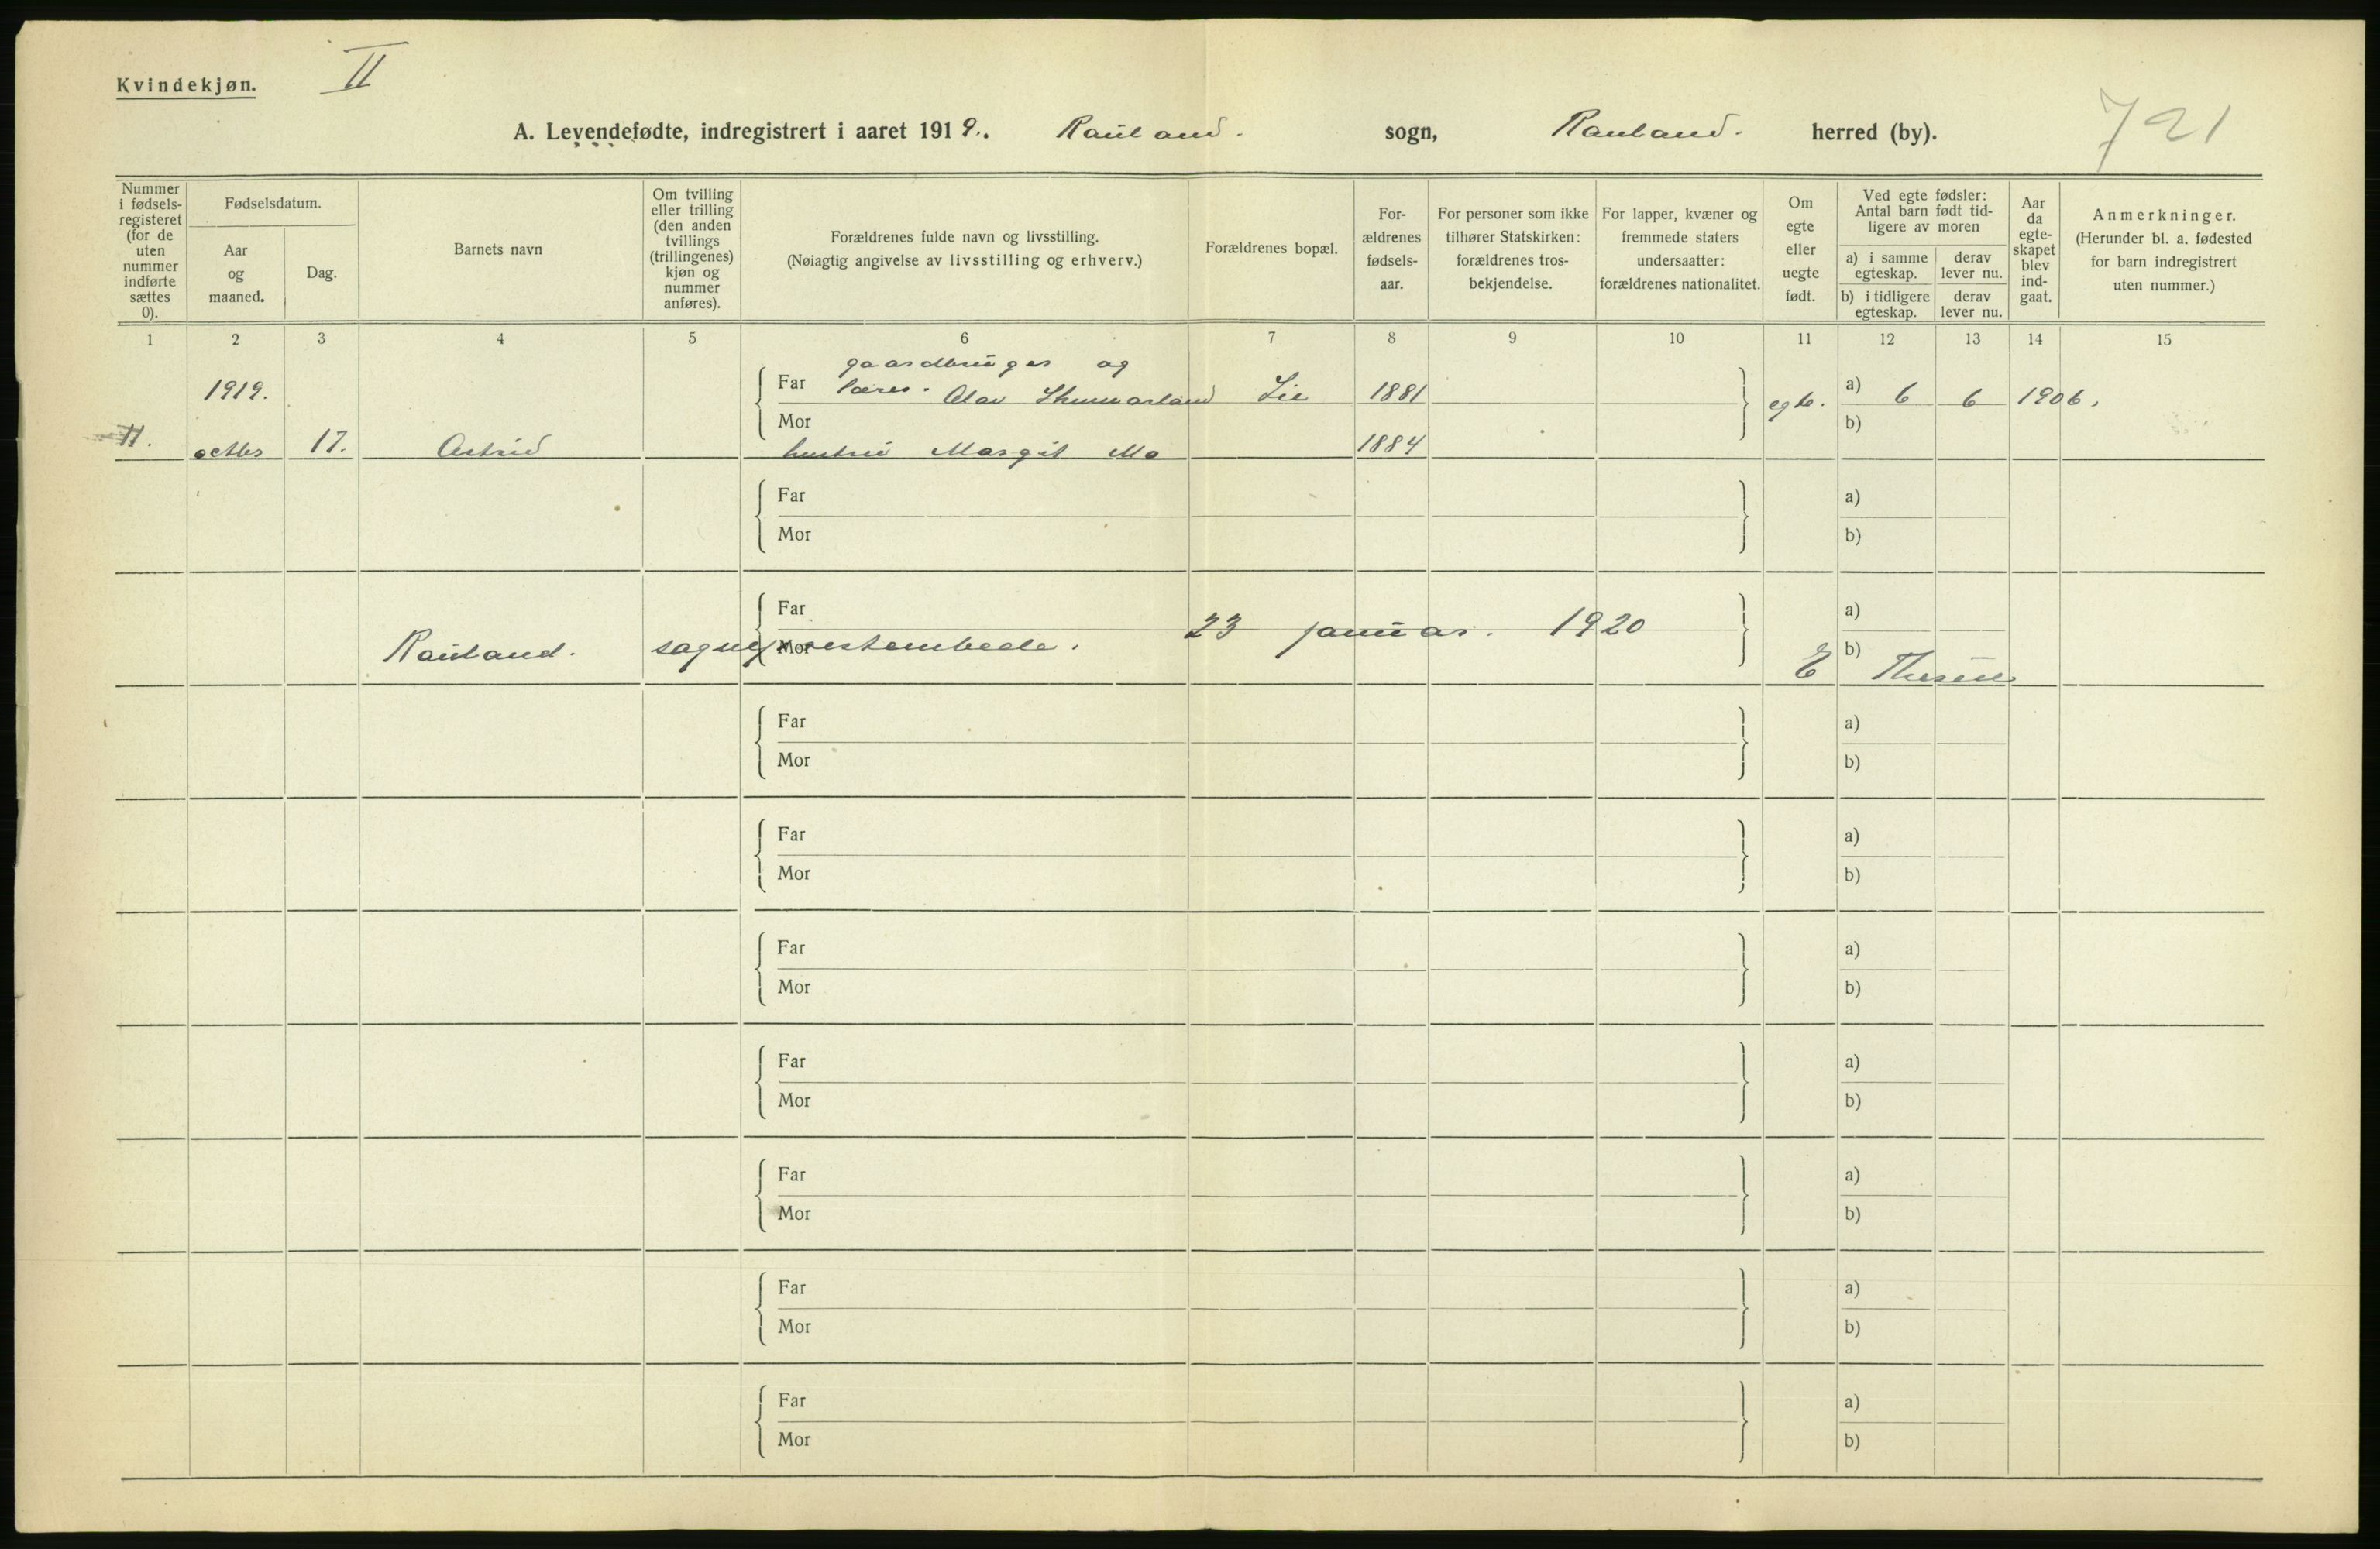 Kvindekjøn. II
721
A. Levendefødte, indregistrert i aaret 1919. Rauland. sogn, Rauland. herred (by).
Nummer i fødsels-registeret (for de uten nummer indførte sættes 0).
Fødselsdatum.
Aar og maaned.
Dag.
Barnets navn
Om tvilling eller trilling (den anden tvillings (trillingenes) kjøn og nummer anføres).
Forældrenes fulde navn og livsstilling.
(Nøiagtig angivelse av livsstilling og erhverv.)
Forældrenes bopæl.
For-ældrenes fødsels-aar.
For personer som ikke tilhører Statskirken: forældrenes tros-bekjendelse.
For lapper, kvæner og fremmede staters undersaatter: forældrenes nationalitet.
Om egte eller uegte født.
Ved egte fødsler: Antal barn født tid-ligere av moren
a) i samme egteskap.
derav lever nu.
b) i tidligere egteskap.
derav lever nu.
Aar da egte-skapet blev ind-gaat.
Anmerkninger.
(Herunder bl. a. fødested for barn indregistrert uten nummer.)
1 2 3 4 5 6 7 8 9 10 11 12 13 14 15
gaardbruger og
1919. Far lærer. Olav Lie 1881 egte. a) 6 6 1906.
Mor b)
11. octbr 17. Astrid hustru Margit Mo 1884
Far a)
Mor b)
Far a)
23 januar. 1920
Rauland. sogneprestembede. Mor b)
E
Far a)
Mor b)
Far a)
Mor b)
Far a)
Mor b)
Far a)
Mor b)
Far a)
Mor b)
Far a)
Mor b)
Far a)
Mor b)